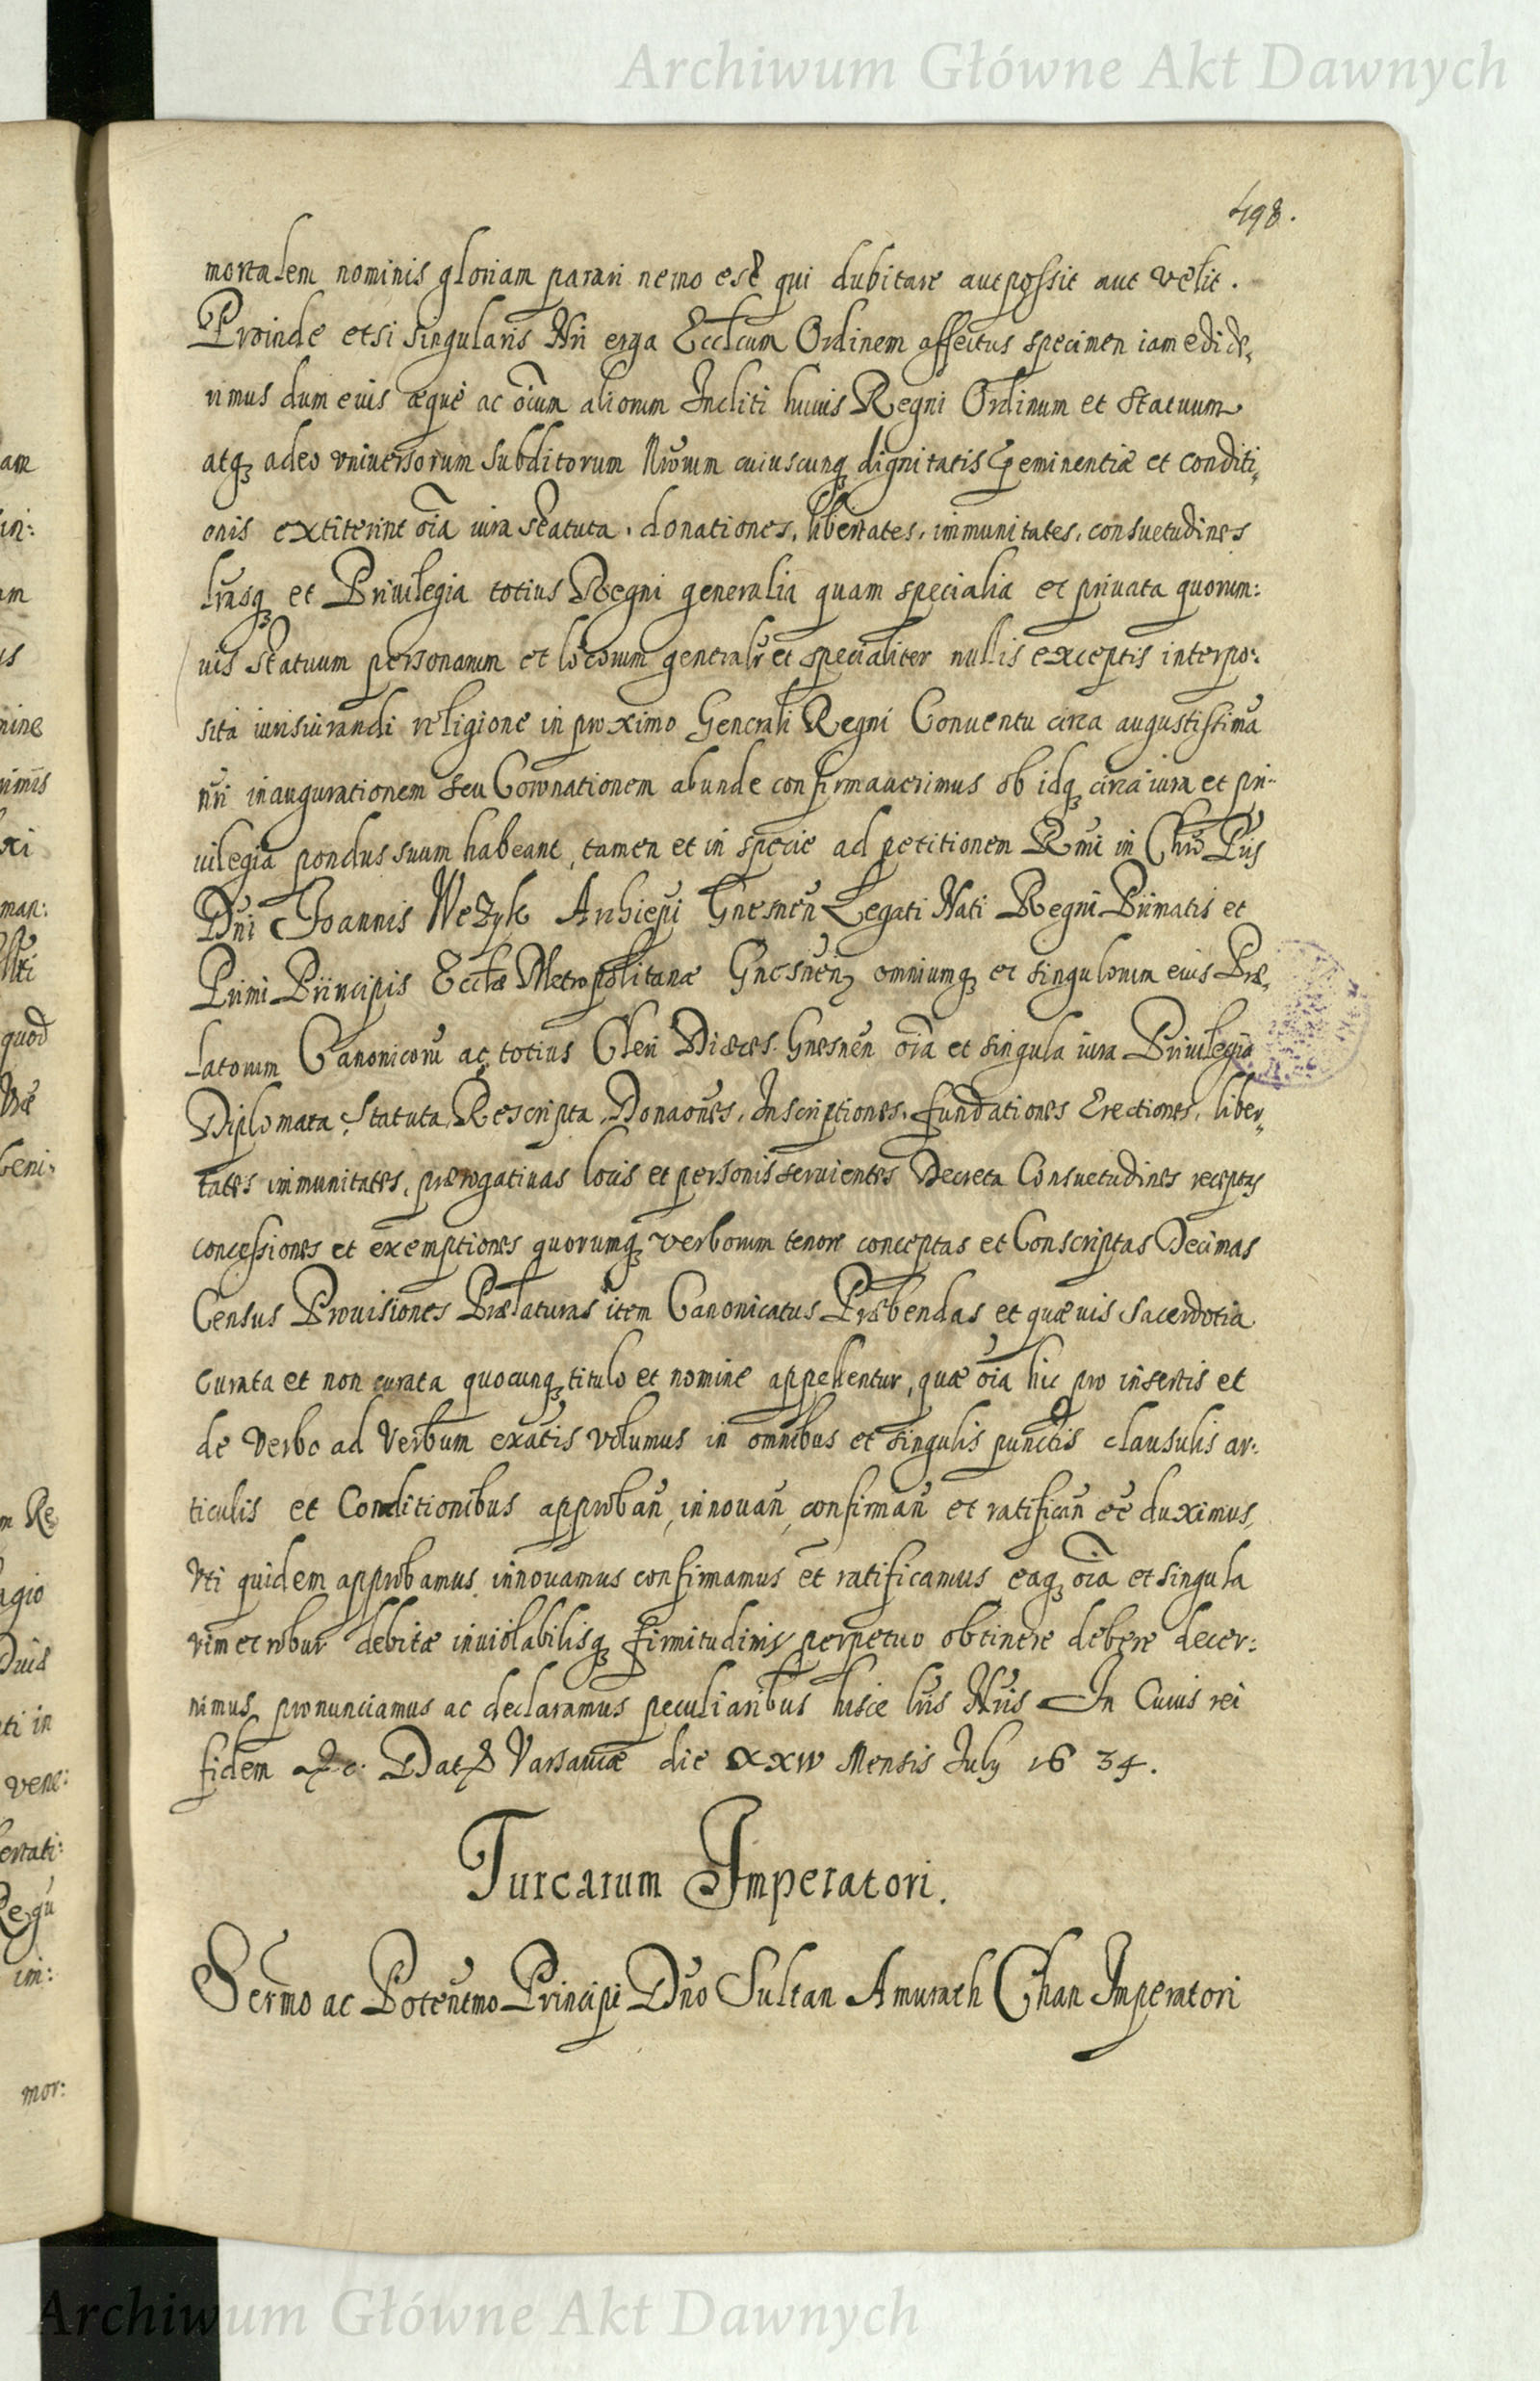 Archiwum Główne Akt Dawnych
498.
mortalem nominis gloriam parari nemo est qui dubitare aut possit aut velit.
Proinde etsi singularis Nri erga Ecclcum Ordinem affectus specimen iam edide,
rimus dum eius æque ac oium aliorum Incliti huius Regni Ordinum et Statuum
atq adeo vniuersorum subditorum Nrorum cuiuscunq dignitatis eminentiæ et conditi,
onis extiterint oia iura statuta, donationes, libertates, immunitates, consuetudines
lrasq et Priuilegia totius Regni generalia quam specialia et priuata quorum:
uis statuum personarum et locorum generalr et specialiter nullis exceptis interpo:
sita iurisiurandi religione in proximo Generali Regni Conuentu circa augustissima
nri inaugurationem seu Coronationem abunde confirmauerimus ob idq circa iura et pri-
uilegia pondus suum habeant, tamen et in specie ad petitionem Rmi in Chro Pris
Dni Joannis Wezyk Archiepi Gnesnen Legati Nati Regni Primatis et
Primi Principis Ecclæ Metropolitanæ Gnesnen omniumq et singulorum eius Præ,
latorum Canonicoru ac totius Cleri Diæces. Gnesnen oia et singula iura Priuilegia
Diplomata, Statuta, Rescripta, Donaones, Inscriptiones, fundationes Erectiones, liber,
tates immunitates, prærogatiuas locis et personis seruientes Decreta Consuetudines receptas
concessiones et exemptiones quorumq verborum tenore conceptas et Conscriptas Decimas
Census Prouisiones Prælaturas item Canonicatus Præbendas et quæuis sacerdotia
curata et non curata quocunq titulo et nomine appellentur, quæ oia hic pro insertis et
de verbo ad verbum exatis volumus in omnibus et singulis punctis clausulis ar:
ticulis et Conditionibus approban, innouan, confirman et ratifican ee duximus,
Vti quidem approbamus innouamus confirmamus et ratificamus eaq oia et singula
vim et robur debitæ inuiolabilisq firmitudinis perpetuo obtinere debere decer:
nimus, pronunciamus ac declaramus peculiaribus hisce lris Nris In Cuius rei
fidem &c. Dat Varsauiæ die XXIV Mensis July 1634.
Turcarum Imperatori.
Sermo ac Potentmo Principi Dno Sultan Amurath Chan Imperatori
Archiwum Główne Akt Dawnych